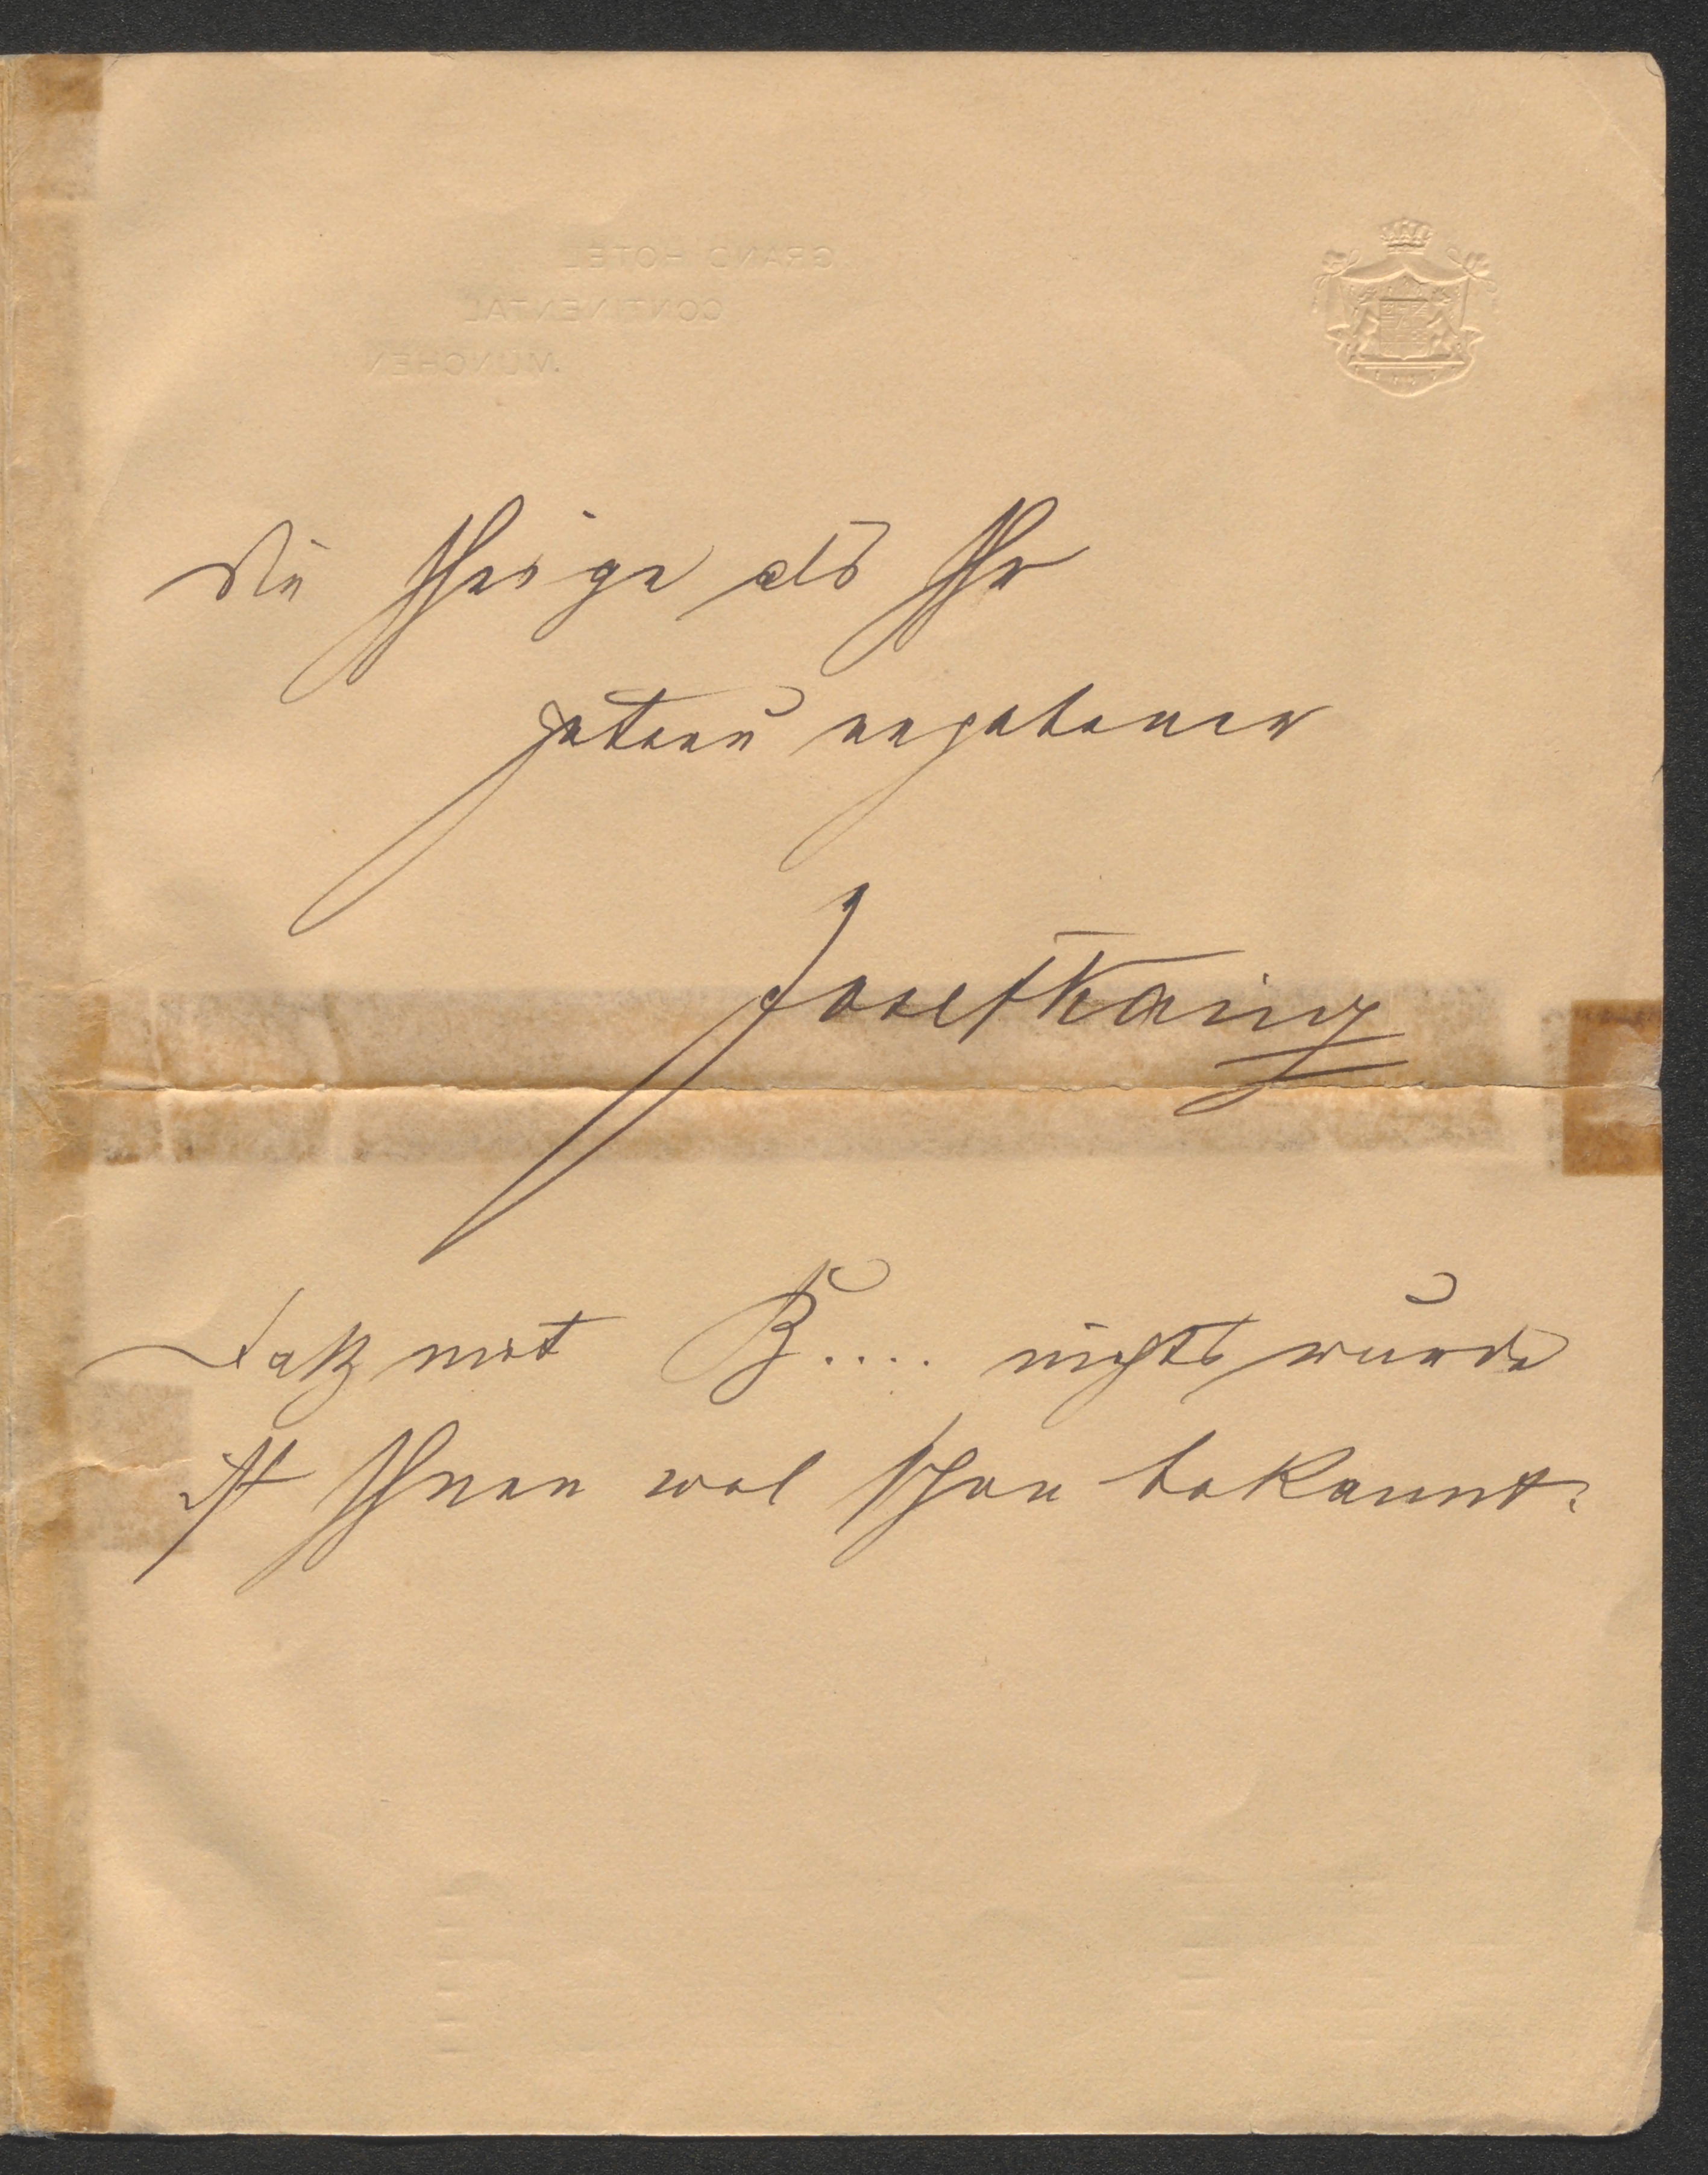 GRAND HOTEL
CONTINENTAL
MÜNCHEN
die Ihrige als Ihr
getreu ergebener
Josef Kainz
Daß mit B.... nichts wurde
ist Ihnen wol schon bekannt.